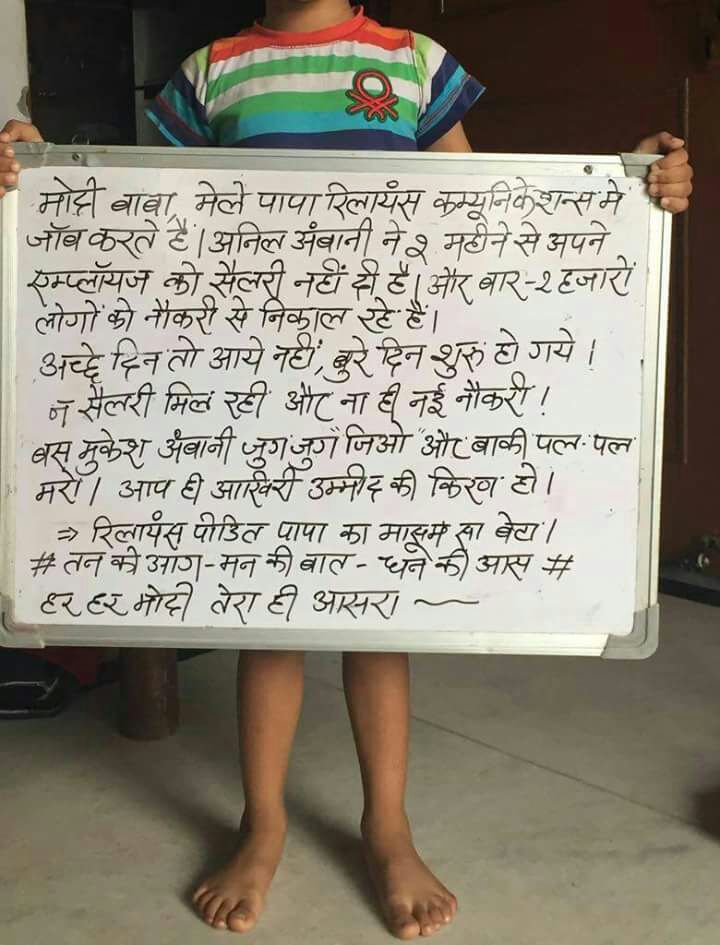 मोदी बाबा, मेले पापा रिलायंस कम्यूनिकेशन्स मे
जॉब करते हैं। अनिल अंबानी ने २ महीने से अपने
एम्प्लॉयज को सैलरी नहीं दी है। और बार-२ हजारों
लोगों को नौकरी से निकाल रहे हैं।
अच्छे दिन तो आये नहीं, बुरे दिन शुरू हो गये !
न सैलरी मिल रही और ना ही नई नौकरी !
बस मुकेश अंबानी जुग जुग जिओ "और बाकी पल-पल
मरो। आप ही आखिरी उम्मीद की किरण हो।
⇒ रिलायंस पीडित पापा का मासूम सा बेटा।
# तन की आग - मन की बात - धन की आस #
हर हर मोदी तेरा ही आसरा ~